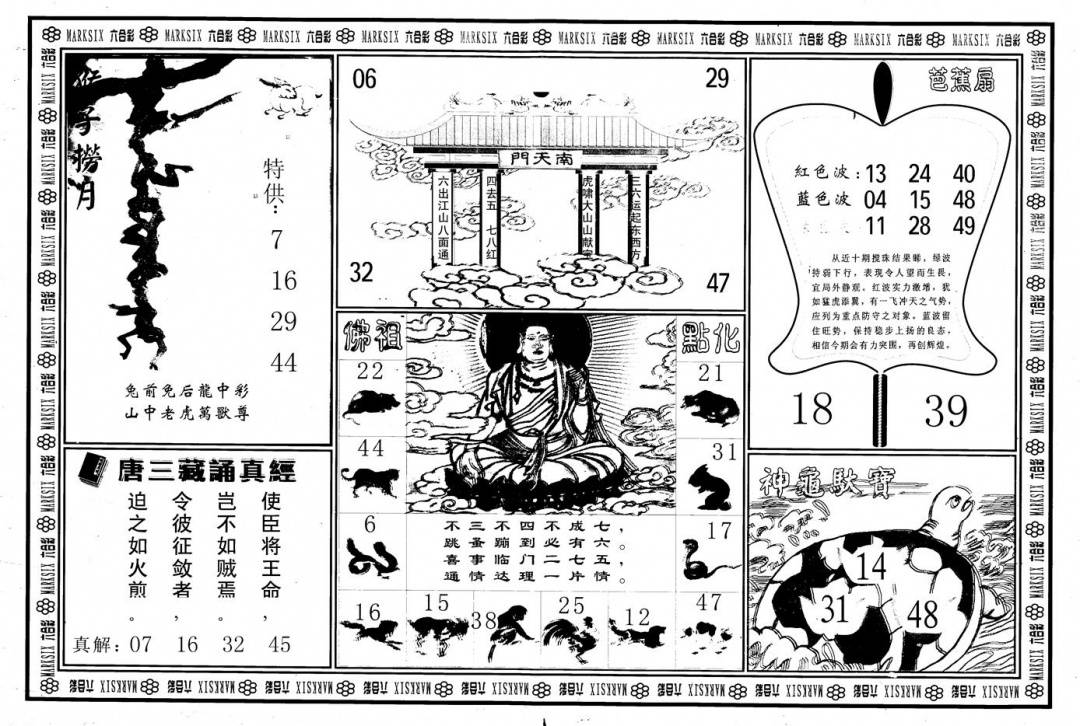 MARKSIX 六合彩 MARKSIX 六合彩 MARKSIX 六合彩 MARKSIX 六合彩 MARKSIX 六合彩 MARKSIX 六合彩 MARKSIX 六合彩 MARKSIX 六合彩 MARKSIX 六合彩 MARKSIX 六合彩
猴子撈月
特供：
7
16
29
44
兔前兔后龍中彩
山中老虎萬獸尊
唐三藏誦真經
使臣将王命，
岂不如贼焉。
令彼征敛者，
迫之如火煎。
真解：07 16 32 45
06 29
南天門
六出江山八面通
四去五 七八红
虎啸大山山献宝
三六运起东西方
32 47
佛祖 點化
22 21
44 31
6 17
不三不四不成七，
跳蚤蹦到必有六。
喜事临门二七五，
通情达理一片情。
16 15 38 25 12 47
芭蕉扇
紅色波：13 24 40
藍色波 04 15 48
11 28 49
从近十期搅珠结果睇，绿波
特弱下行，表现令人望而生畏，
宜局外静观。红波实力激增，犹
如猛虎添翼，有一飞冲天之气势，
应列为重点防守之对象。蓝波留
住旺势，保持稳步上扬的良态，
相信今期会有力突围，再创辉煌。
18 39
神龜馱寶
14
31 48